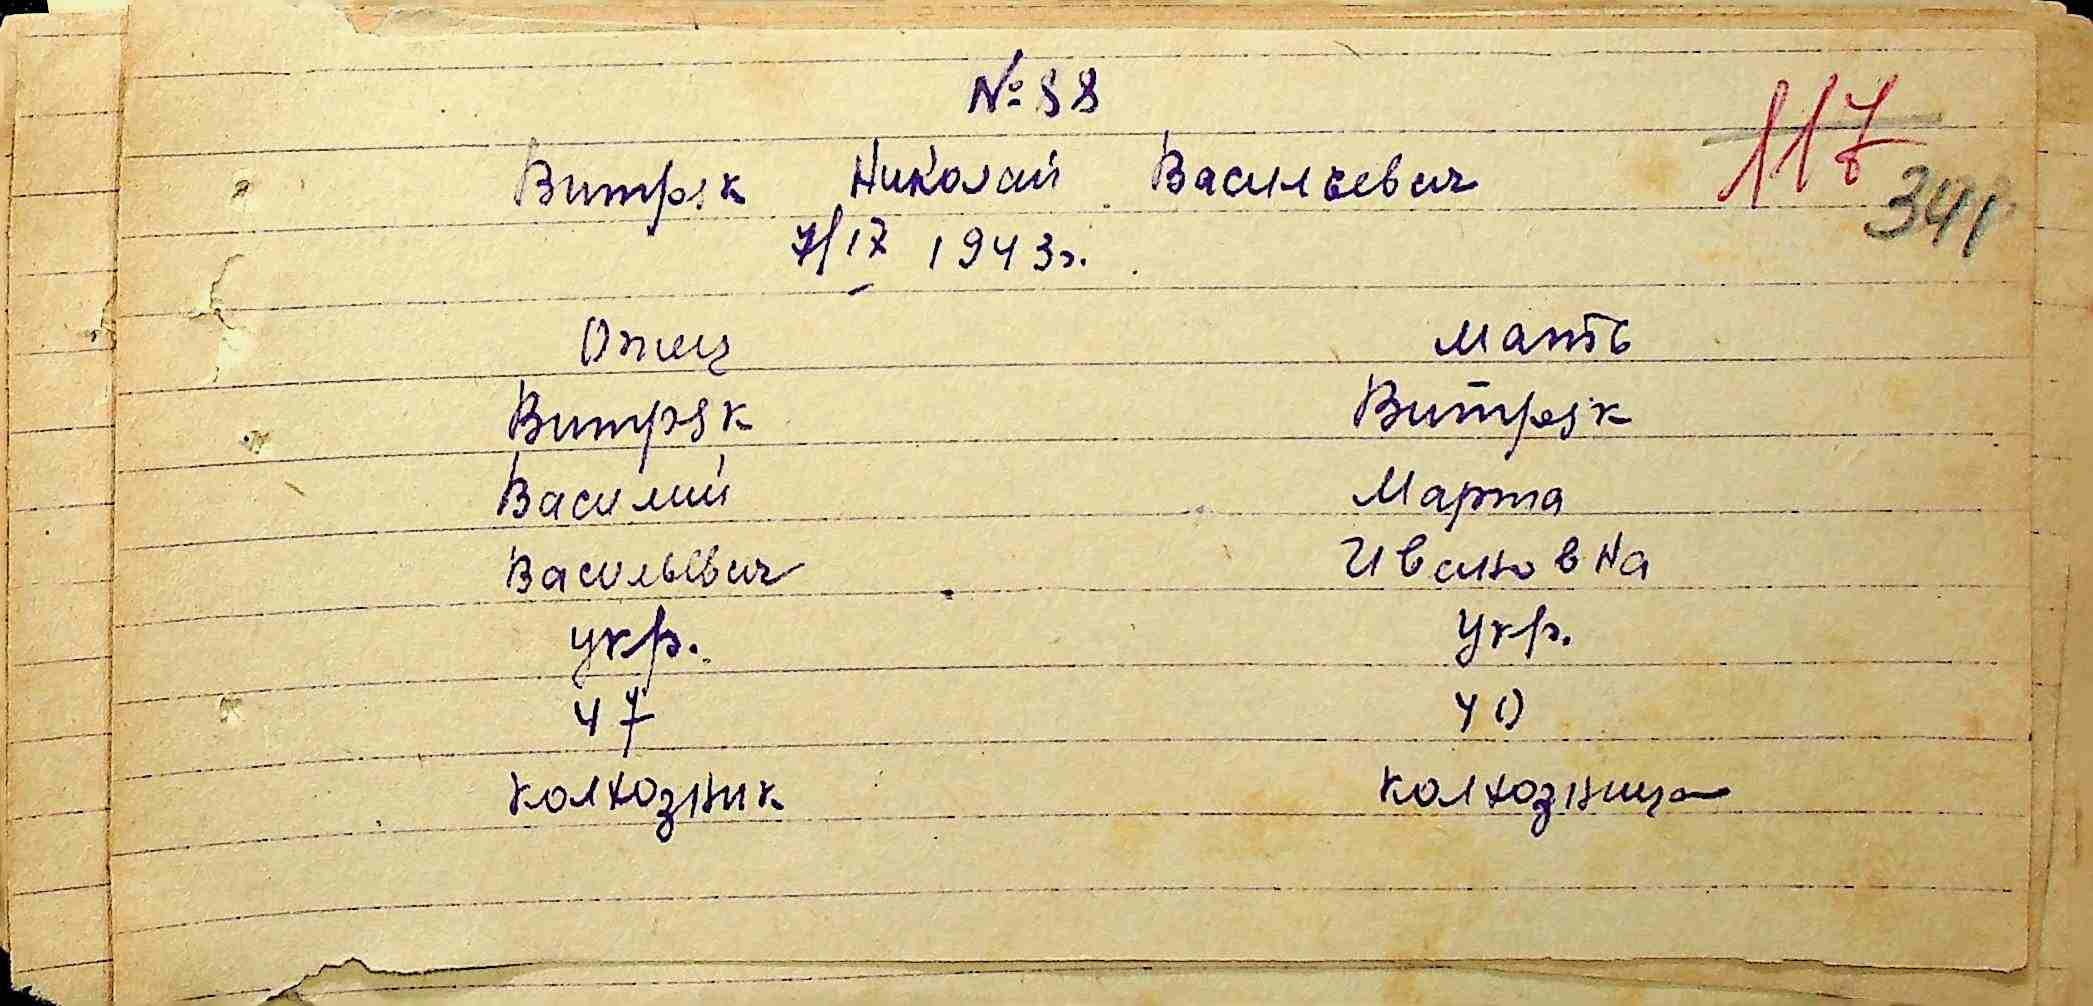 № 88
117
341
Витряк Николай Васильевич
7/IX 1943г.
Отец Мать
Витряк Витряк
Василий Марта
Васильевич Ивановна
укр. Укр.
47 40
колхозник колхозница